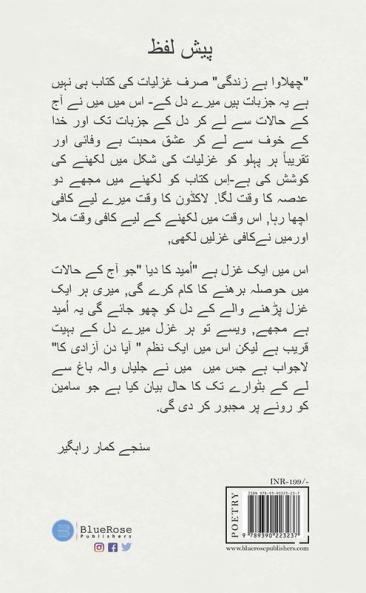 پیش لفظ
"چھلاوا ہے زندگی" صرف غزلیات کی کتاب ہی نہیں
ہے یہ جزبات ہیں میرے دل کے- اس میں میں نے آج
کے حالات سے لے کر دل کے جزبات تک اور خدا
کے خوف سے لے کر عشق محبت بے وفائی اور
تقریباً ہر پہلو کو غزلیات کی شکل میں لکھنے کی
کوشش کی ہے-اِس کتاب کو لکھنے میں مجھے دو
عدصہ کا وقت لگا. لاکڈون کا وقت میرے لیے کافی
اچھا رہا, اس وقت میں لکھنے کے لیے کافی وقت ملا
اورمیں نےکافی غزلیں لکھی,
اس میں ایک غزل ہے "اُمید کا دیا "جو آج کے حالات
میں حوصلہ برھنے کا کام کرے گی, میری ہر ایک
غزل پڑھنے والے کے دل کو چھو جائے گی یہ اُمید
ہے مجھے, ویسے تو ہر غزل میرے دل کے بہت
قریب ہے لیکن اس میں ایک نظم " آیا دن آزادی کا"
لاجواب ہے جس میں میں نے جلیاں والہ باغ سے
لے کے بٹوارے تک کا حال بیان کیا ہے جو سامین
کو رونے پر مجبور کر دی گی.
سنجے کمار راہگیر
INR-199/-
POETRY
ISBN 978-93-90223-23-7
9 789390 223237
BlueRose
Publishers
www.bluerosepublishers.com